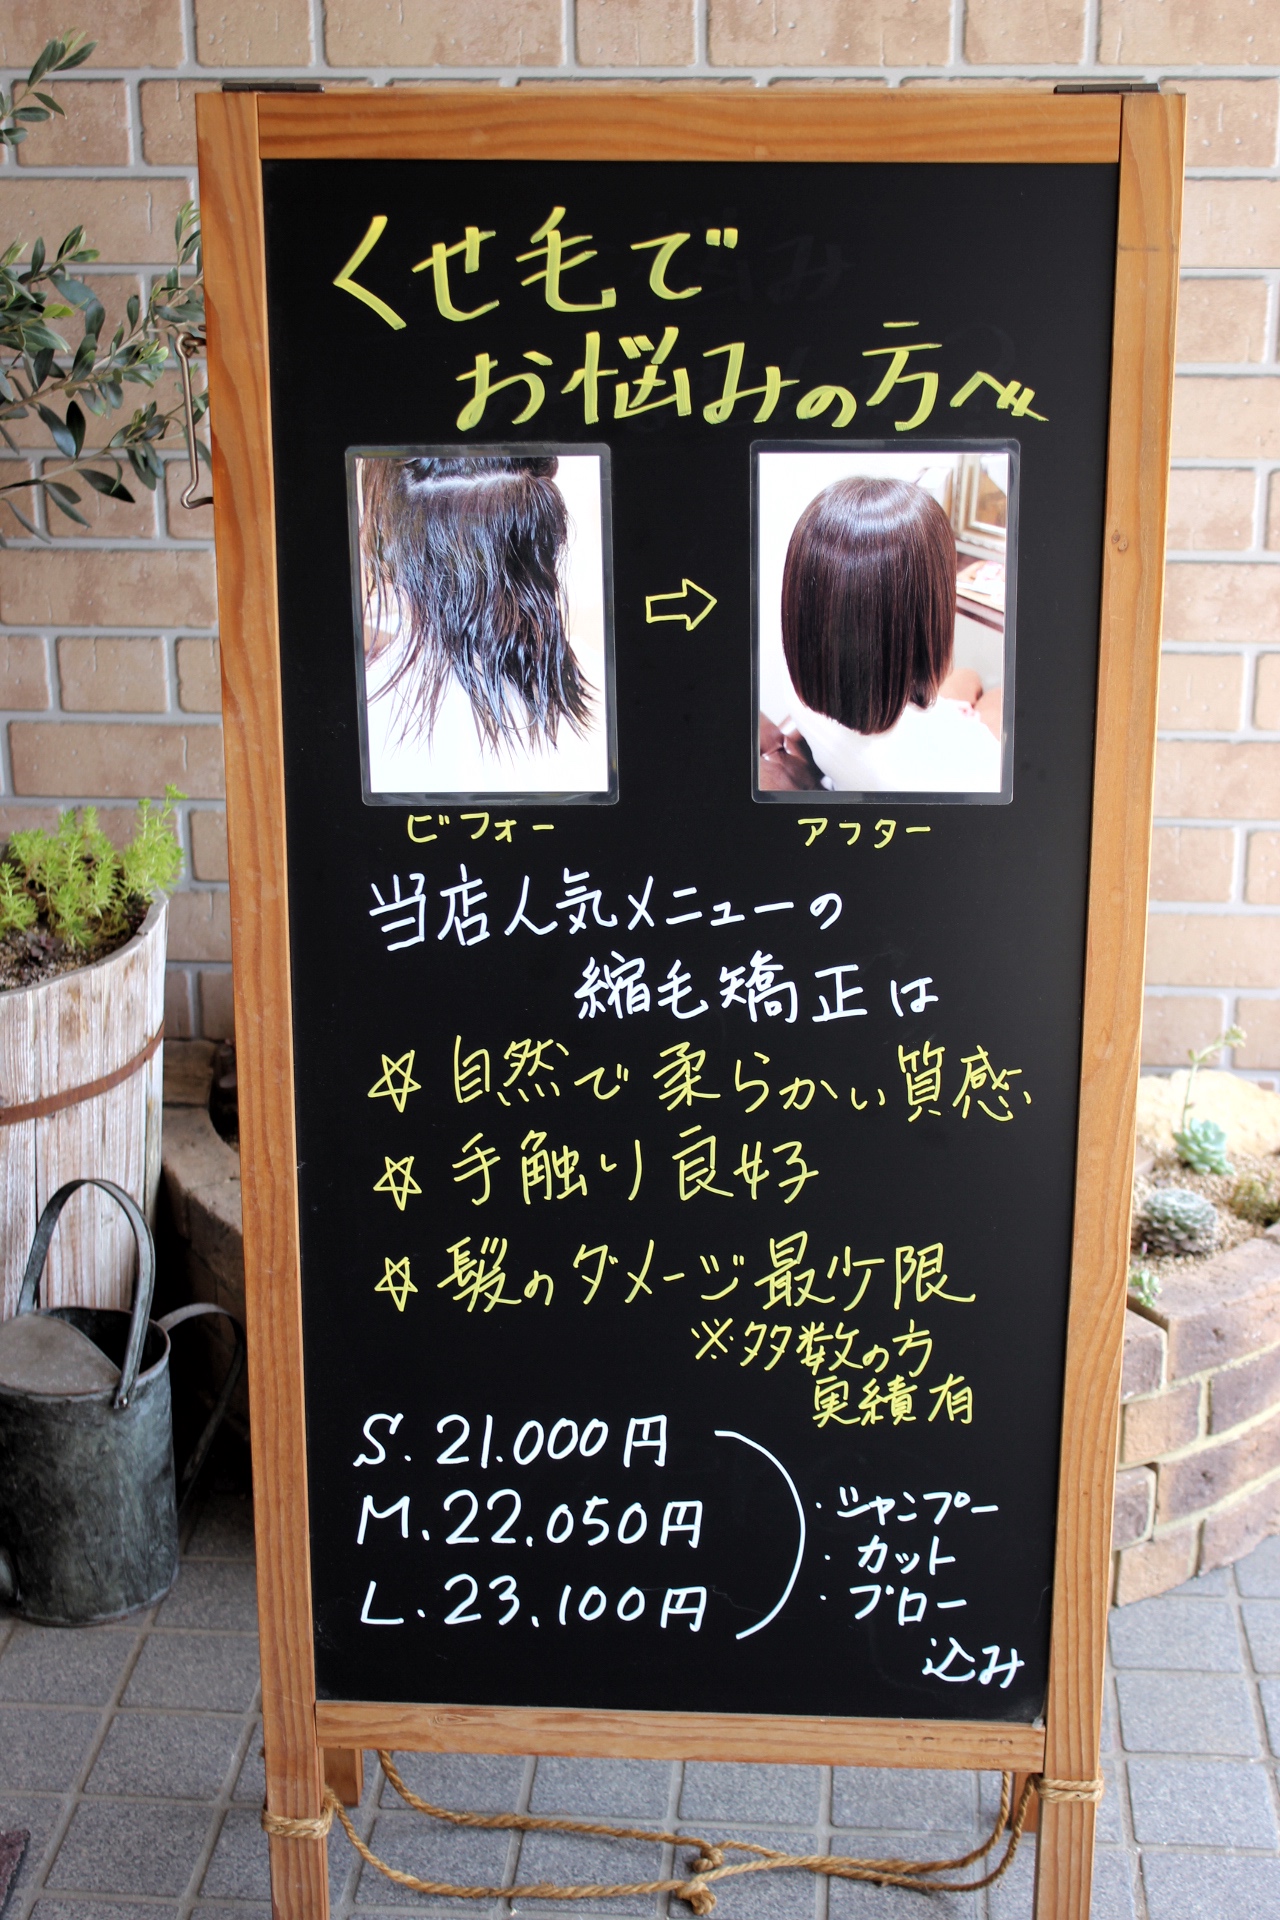 くせ毛で
お悩みの方へ
ビフォー
アフター
当店人気メニューの
縮毛矯正は
☆自然で柔らかい質感
☆手触り良好
☆髪のダメージ最少限
※多数の方
実績有
S. 21.000円
M. 22.050円
L. 23.100円
・シャンプー
・カット
・ブロー
込み